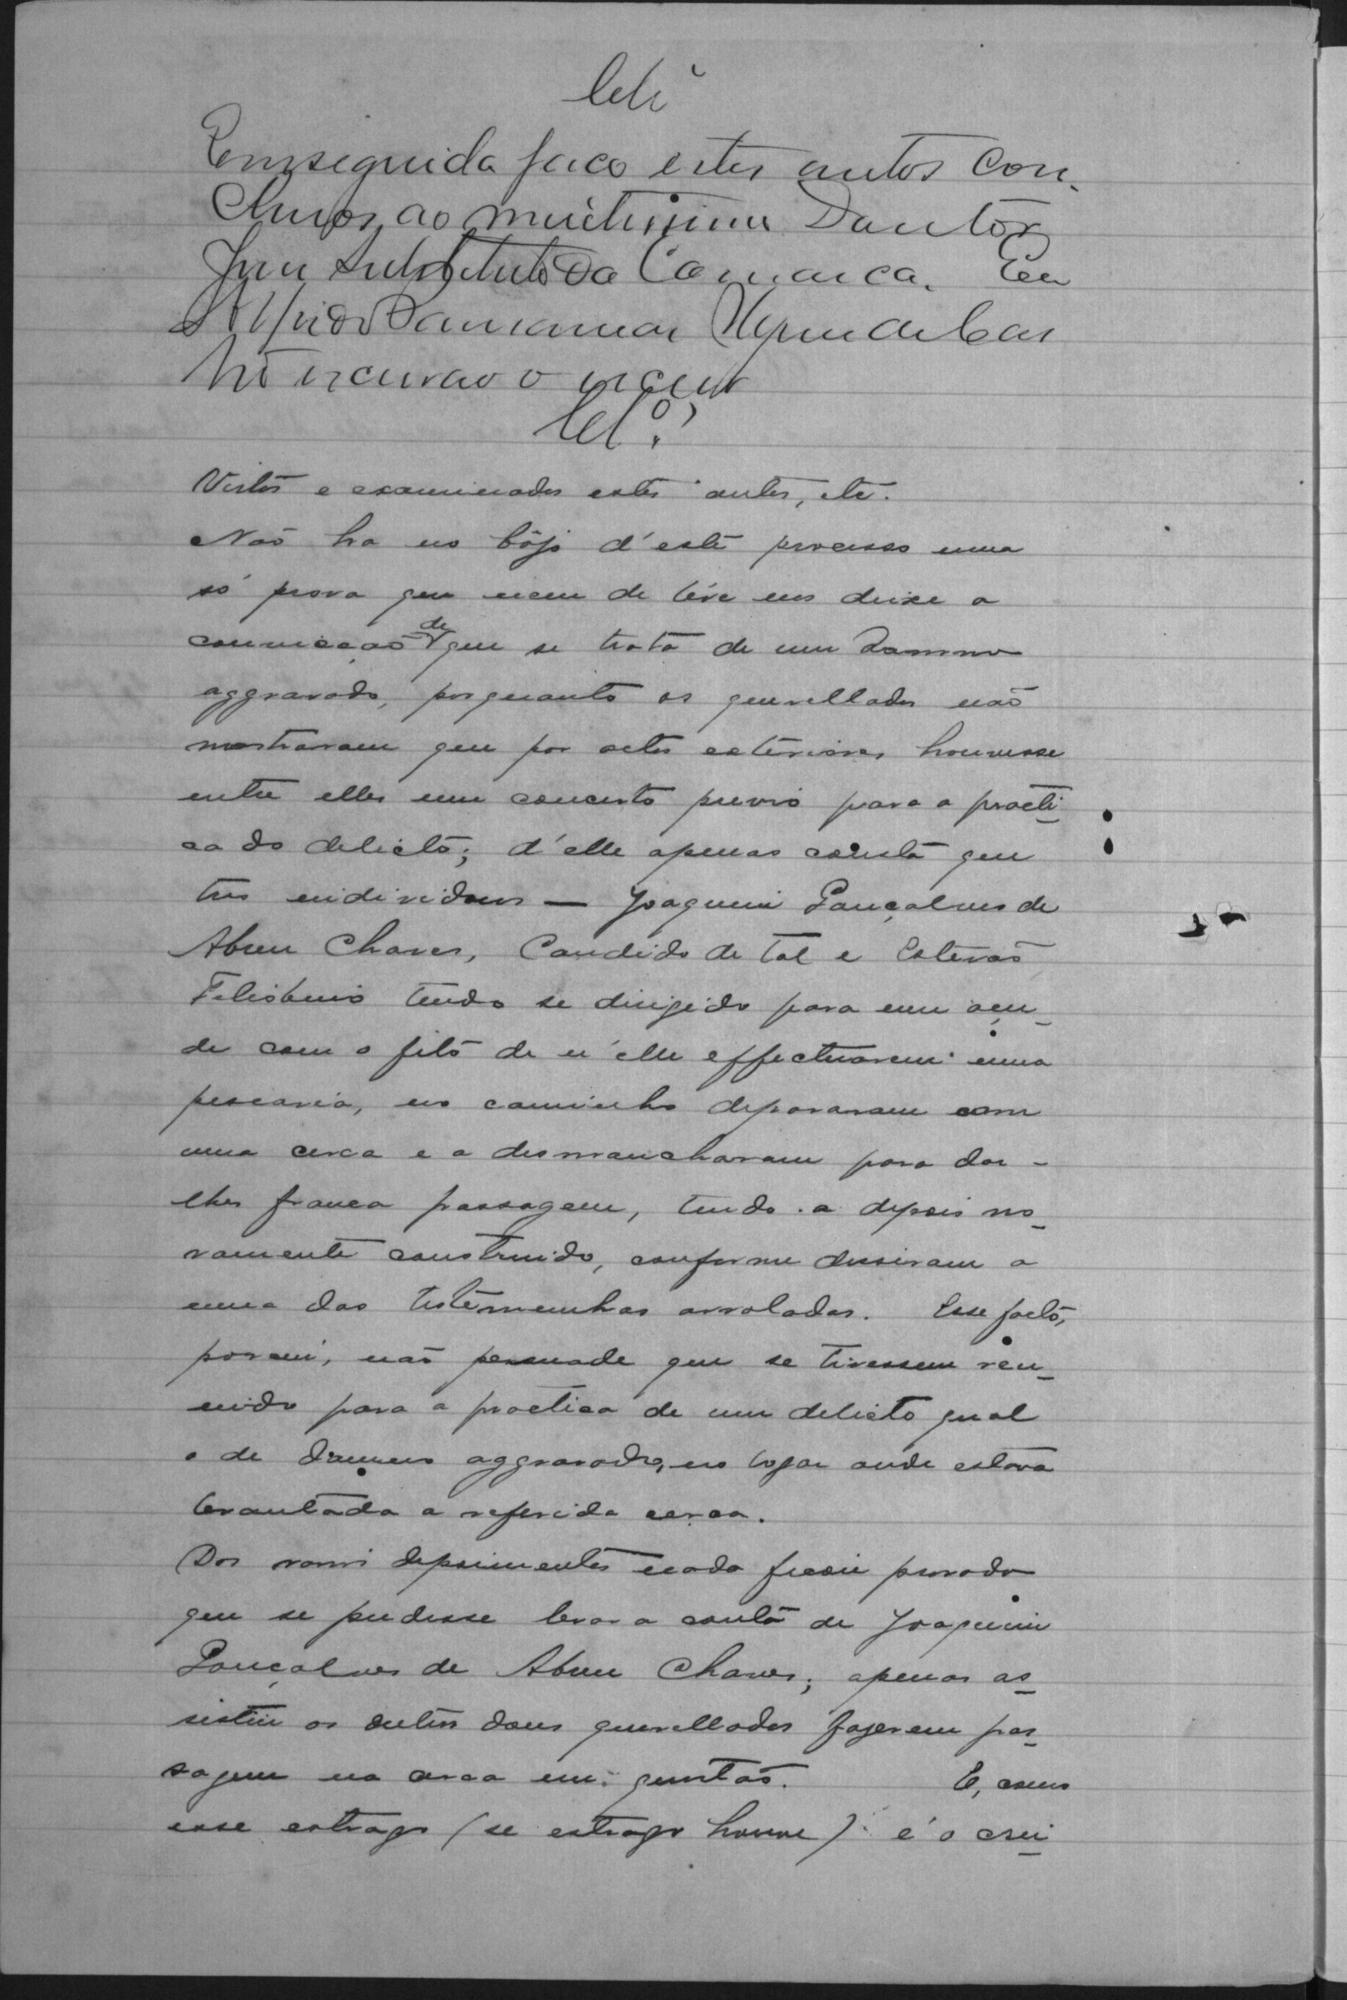 Emseguida faco estes autos con-
clusos ao muitissimo Doutor
Juiz Substituto da Comarca. Eu
Alfredo
escrivão o escrevi
Cls.
Vistos e examinados estes autos, etc.
Não ha no bôjo d'este processo uma
só prova que nem de leve nos deixe a
convicção de que se trata de um damno
aggravado, porquanto os querellados não
mostraram que por actos exteriores houvesse
entre elles um concerto previo para a practi-
ca do delicto; d'elle apenas consta que
tres individuos — Joaquim Gonçalves de
Abreu Chaves, Candido de tal e Estevão
Felisbino tendo se dirigido para um açu-
de com o fito de n'elle effectuarem uma
pescaria, no caminho depararam com
uma cerca e a desmancharam para dar-
lhes franca passagem, tendo-a depois no-
vamente construido, conforme disseram a
uma das testemunhas arroladas. Esse facto,
porem, não persuade que se tivessem reu-
nido para a practica de um delicto qual
o de damno aggravado, no logar onde estava
levantada a referida cerca.
Dos varios depoimentos nada ficou provado
que se pudesse levar a conta de Joaquim
Gonçalves de Abreu Chaves; apenas as-
sistiu os outros dous querellados fazerem pas-
sagem na cerca em questão. E, como
esse estrago (se estrago houve) é o cri-